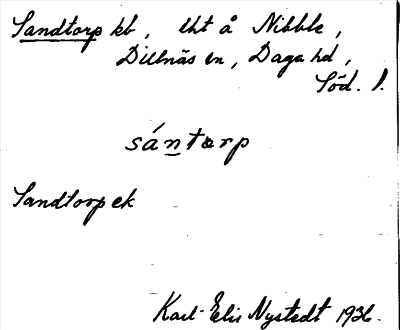 Sandtorp kb, lht å Nibble,
Dillnäs sn, Daga hd,
Söd. l.
sántorp
Sandtorp ek
Karl-Elis Nystedt 1936.